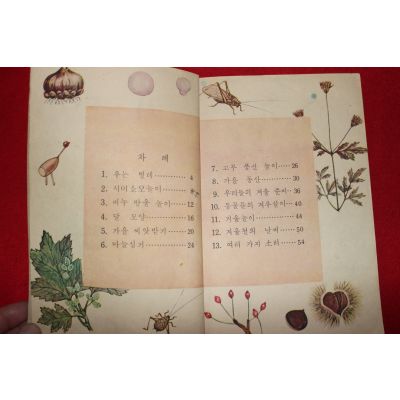 차 례
1. 우는 벌레············4
2. 시이소오놀이······8
3. 비누 방울 놀이···12
4. 달 모양············16
5. 가을 씨앗받기···20
6. 마늘심기·········24
7. 고무 풍선 놀이······26
8. 가을 동산············30
9. 우리들의 겨울 준비···36
10. 동물들의 겨우살이···40
11. 거울놀이············44
12. 겨울철의 날씨······50
13. 여러 가지 소리······54